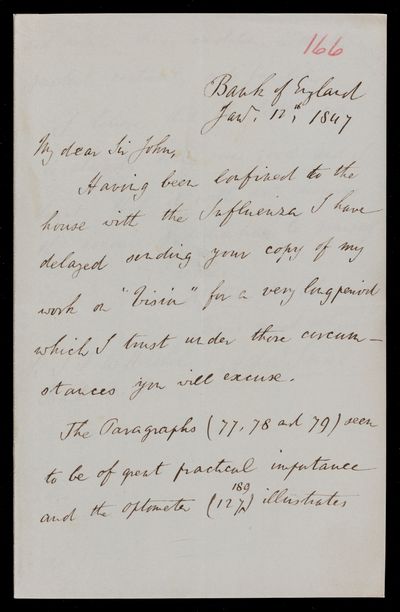 166
Bank of England
Jany. 12th, 1847
My dear Sir John,
Having been confined to the
house with the Influenza I have
delayed sending your copy of my
work on "Vision" for a very long period
which I trust under those circum-
stances you will excuse.
The Paragraphs (77, 78 and 79) seem
to be of great practical importance
189
and the Optometer (127) illustrates